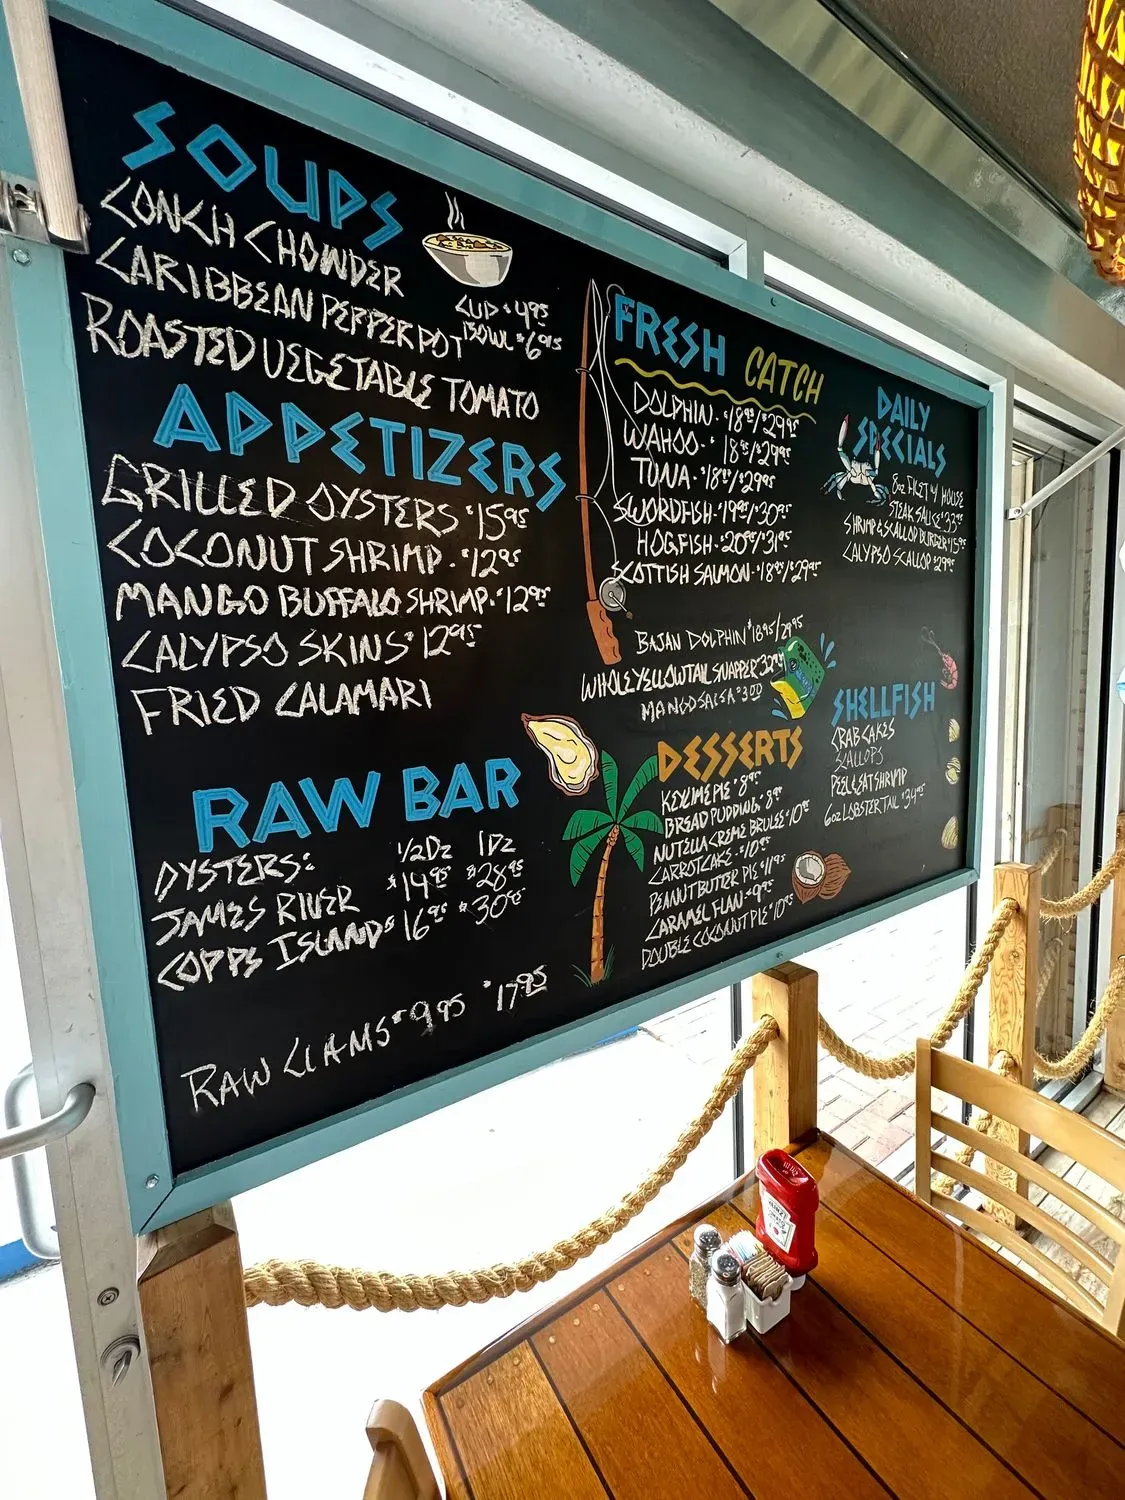 SOUPS
CONCH CHOWDER
CARIBBEAN PEPPERPOT
ROASTED VEGETABLE TOMATO
CUP $4.95
BOWL $6.95
APPETIZERS
GRILLED OYSTERS $15.95
COCONUT SHRIMP $12.95
MANGO BUFFALO SHRIMP $12.95
CALYPSO SKINS $12.95
FRIED CALAMARI
RAW BAR
OYSTERS: 1/2 DZ 1 DZ
JAMES RIVER $14.95 $28.95
COPPS ISLANDS 16.95 $30.95
RAW CLAMS $9.95 $17.95
FRESH CATCH
DOLPHIN $18.95/$29.95
WAHOO $18.95/$29.95
TUNA $18.95/$29.95
SWORDFISH $19.95/$30.95
HOGFISH $20.95/$31.95
SCOTTISH SALMON $18.95/$29.95
BAJAN DOLPHIN $18.95/29.95
WHOLE YELLOWTAIL SNAPPER 32.95
MANGO SALSA
DESSERTS
KEY LIME PIE $8.95
BREAD PUDDING $8.95
NUTELLA CREME BRULEE $10.95
CARROT CAKE $10.95
PEANUT BUTTER PIE $11.95
CARAMEL FLAN $9.95
DOUBLE COCONUT PIE $10.95
DAILY
SPECIALS
8oz FILET W HOUSE
STEAK SAUCE $33.95
SHRIMP & SCALLOP BURGER $15.95
CALYPSO SCALLOP $29.95
SHELLFISH
CRAB CAKES
SCALLOPS
PEEL & EAT SHRIMP
6oz LOBSTER TAIL $34.95